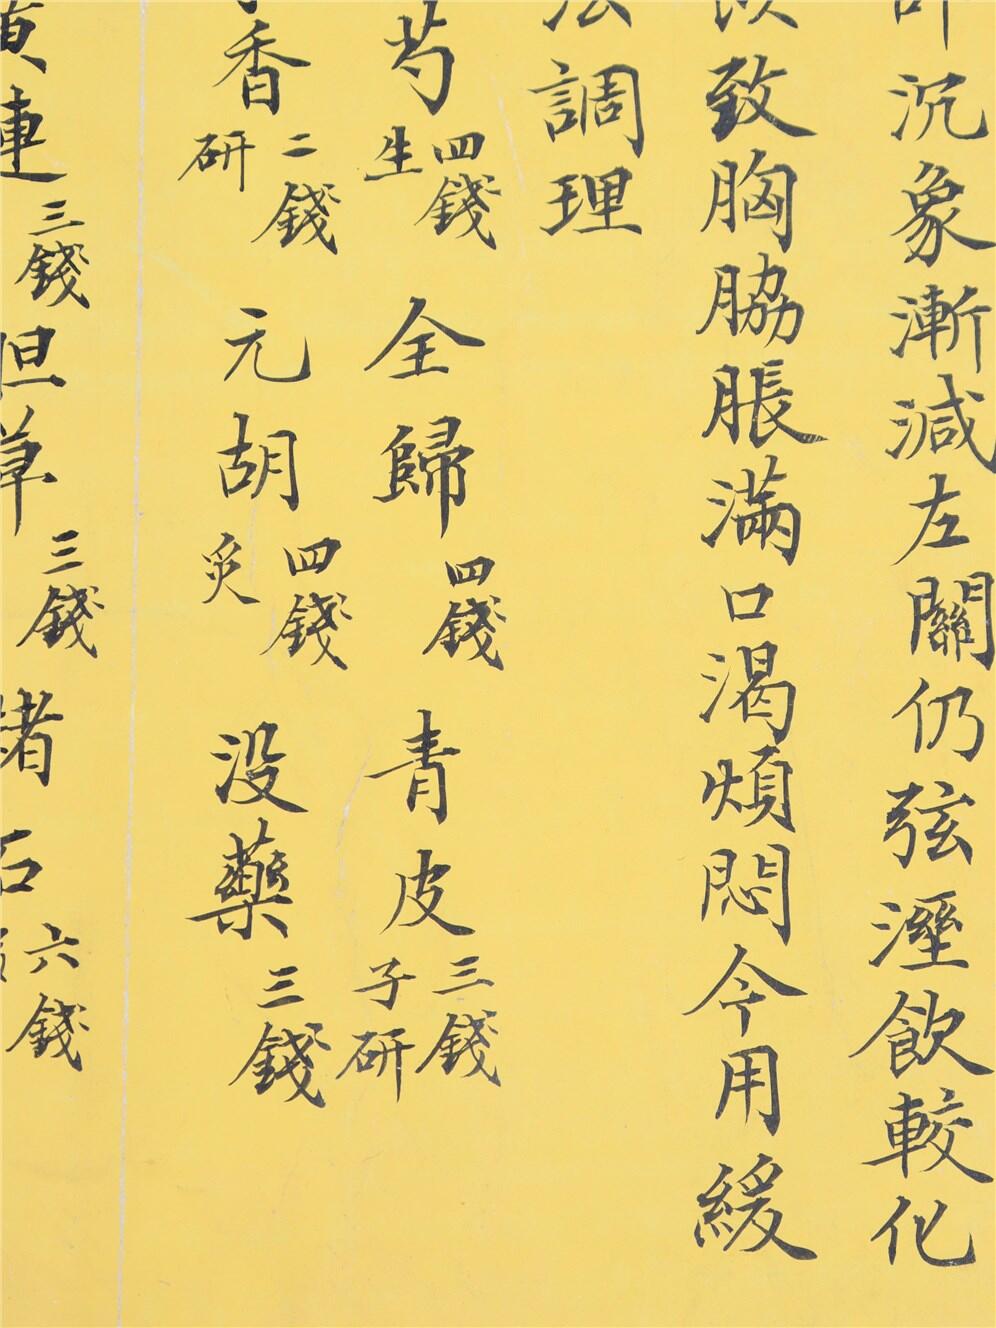 沉象漸減左關仍弦溼飲較化
致胸脇脹滿口渴煩悶今用緩
法調理
芍四錢生 全歸四錢 青皮三錢子研
香二錢研 元胡四錢炙 没藥三錢
連三錢 胆草三錢 赭石六錢